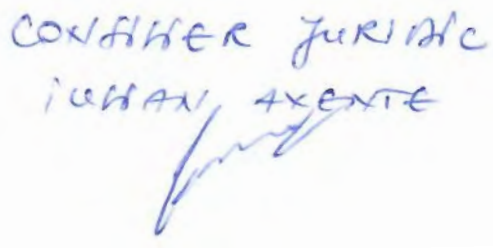 CONSILIER JURIDIC
IULIAN AXENTE